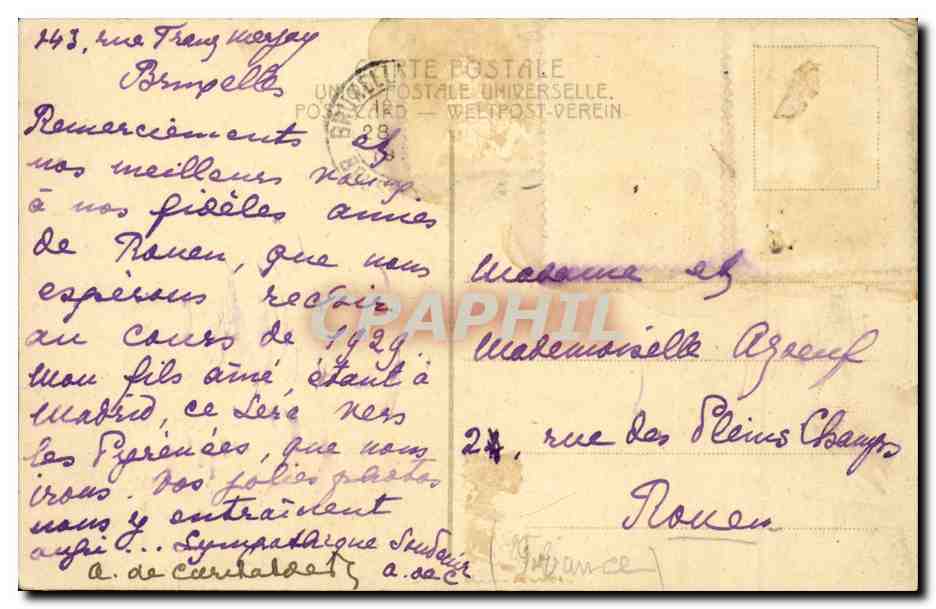 143, rue Franz Merjay
Bruxelles
CARTE POSTALE
UNION POSTALE UNIVERSELLE.
POSTCARD — WELTPOST-VEREIN
28
Remerciements et
nos meilleurs voeux
à nos fidèles amies
de Rouen, que nous
espérons revoir
au cours de 1929.
Mon fils aîné, étant à
Madrid, ce sera vers
les Pyrénées, que nous
irons. Vos jolies photos
nous y entraînent
aussi... Sympathique Souvenir
a. de
a. de C
Madame et
Mademoiselle
2, rue des Pleins Champs
Rouen
(France)
CPAPHIL